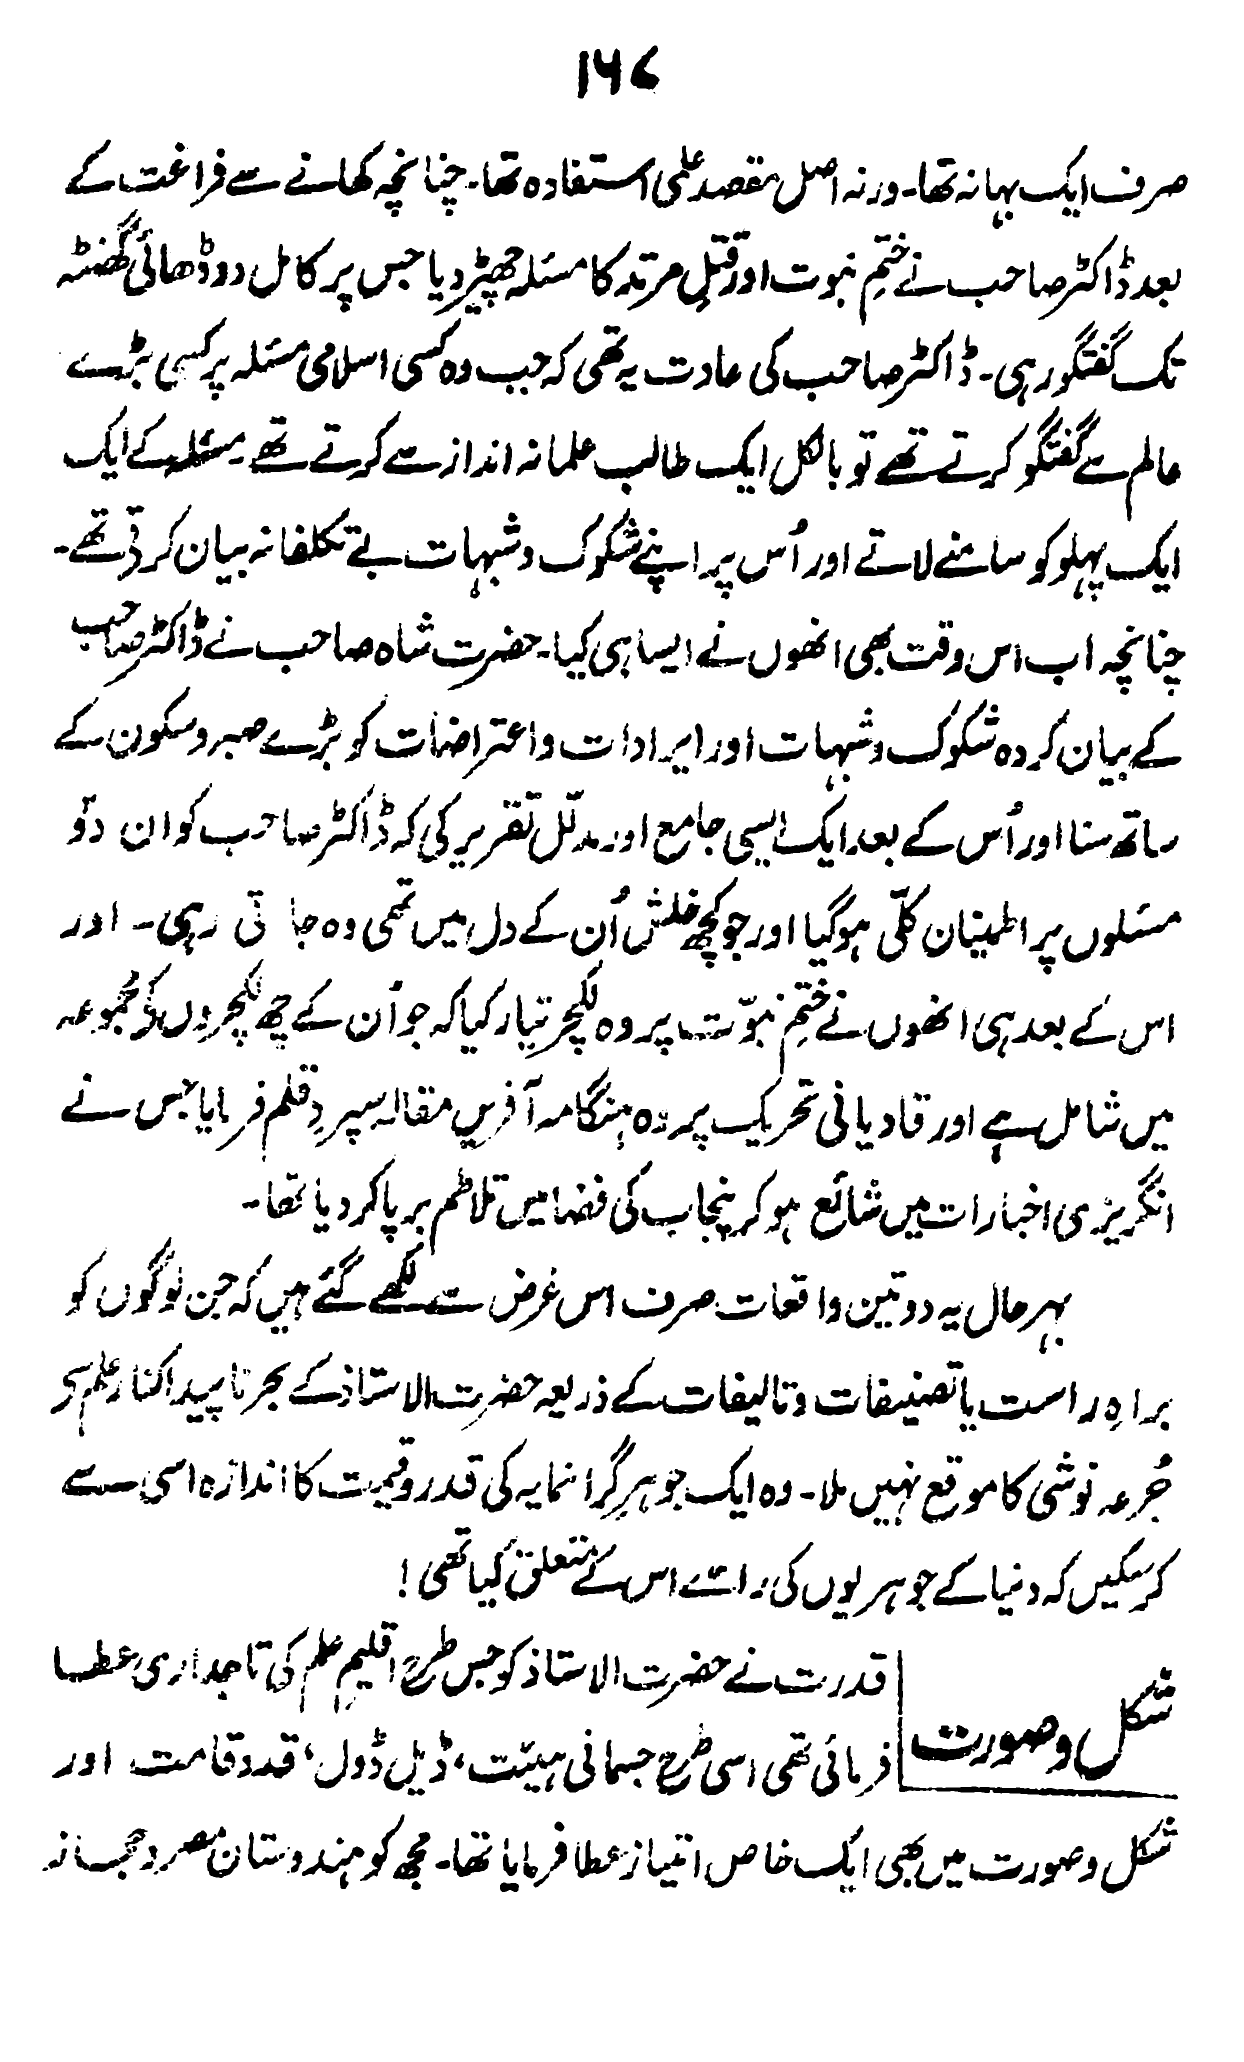 ۱۶۷
صرف ایک بہانہ تھا۔ ورنہ اصل مقصد علمی استفادہ تھا۔ چنانچہ کھانے سے فراغت کے
بعد ڈاکٹر صاحب نے ختمِ نبوت اور قتلِ مرتد کا مسئلہ چھیڑ دیا جس پر کامل دو ڈھائی گھنٹہ
تک گفتگو رہی۔ ڈاکٹر صاحب کی عادت یہ تھی کہ جب وہ کسی اسلامی مسئلہ پر کسی بڑے
عالم سے گفتگو کرتے تھے تو بالکل ایک طالب علمانہ انداز سے کرتے تھے۔ مسئلہ کے ایک
ایک پہلو کو سامنے لاتے اور اُس پر اپنے شکوک و شبہات بے تکلفانہ بیان کرتے تھے۔
چنانچہ اب اس وقت بھی انھوں نے ایسا ہی کیا۔ حضرت شاہ صاحب نے ڈاکٹر صاحب
کے بیان کردہ شکوک و شبہات اور ایرادات و اعتراضات کو بڑے صبر و سکون کے
ساتھ سنا اور اُس کے بعد ایک ایسی جامع اور مدلّل تقریر کی کہ ڈاکٹر صاحب کو ان دوؔ
مسئلوں پر اطمینان کلّی ہو گیا اور جو کچھ خلش اُن کے دل میں تھی وہ جاتی رہی۔ اور
اس کے بعد ہی انھوں نے ختمِ نبوّت پر وہ لکچر تیار کیا کہ جو اُن کے چھ لکچروں کے مجموعہ
میں شامل ہے اور قادیانی تحریک پر وہ ہنگامہ آفریں مقالہ سپردِ قلم فرمایا جس نے
انگریزی اخبارات میں شائع ہو کر پنجاب کی فضا میں تلاطم برپا کر دیا تھا۔
بہر حال یہ دو تین واقعات صرف اس غرض سے لکھے گئے ہیں کہ جن لوگوں کو
براہِ راست یا تصنیفات و تالیفات کے ذریعہ حضرت الاستاذ کے بحر ناپیدا کنار علم سے
جُرعہ نوشی کا موقع نہیں ملا۔ وہ ایک جوہرِ گرانمایہ کی قدر و قیمت کا اندازہ اسی سے
کر سکیں کہ دنیا کے جوہریوں کی رائے اس کے متعلق کیا تھی!
شکل و صورت
قدرت نے حضرت الاستاذ کو جس طرح اقلیمِ علم کی تاجداری عطا
فرمائی تھی اسی طرح جسمانی ہیئت، ڈیل ڈول، قد و قامت اور
شکل و صورت میں بھی ایک خاص امتیاز عطا فرمایا تھا۔ مجھ کو ہندوستان مصر و حجاز